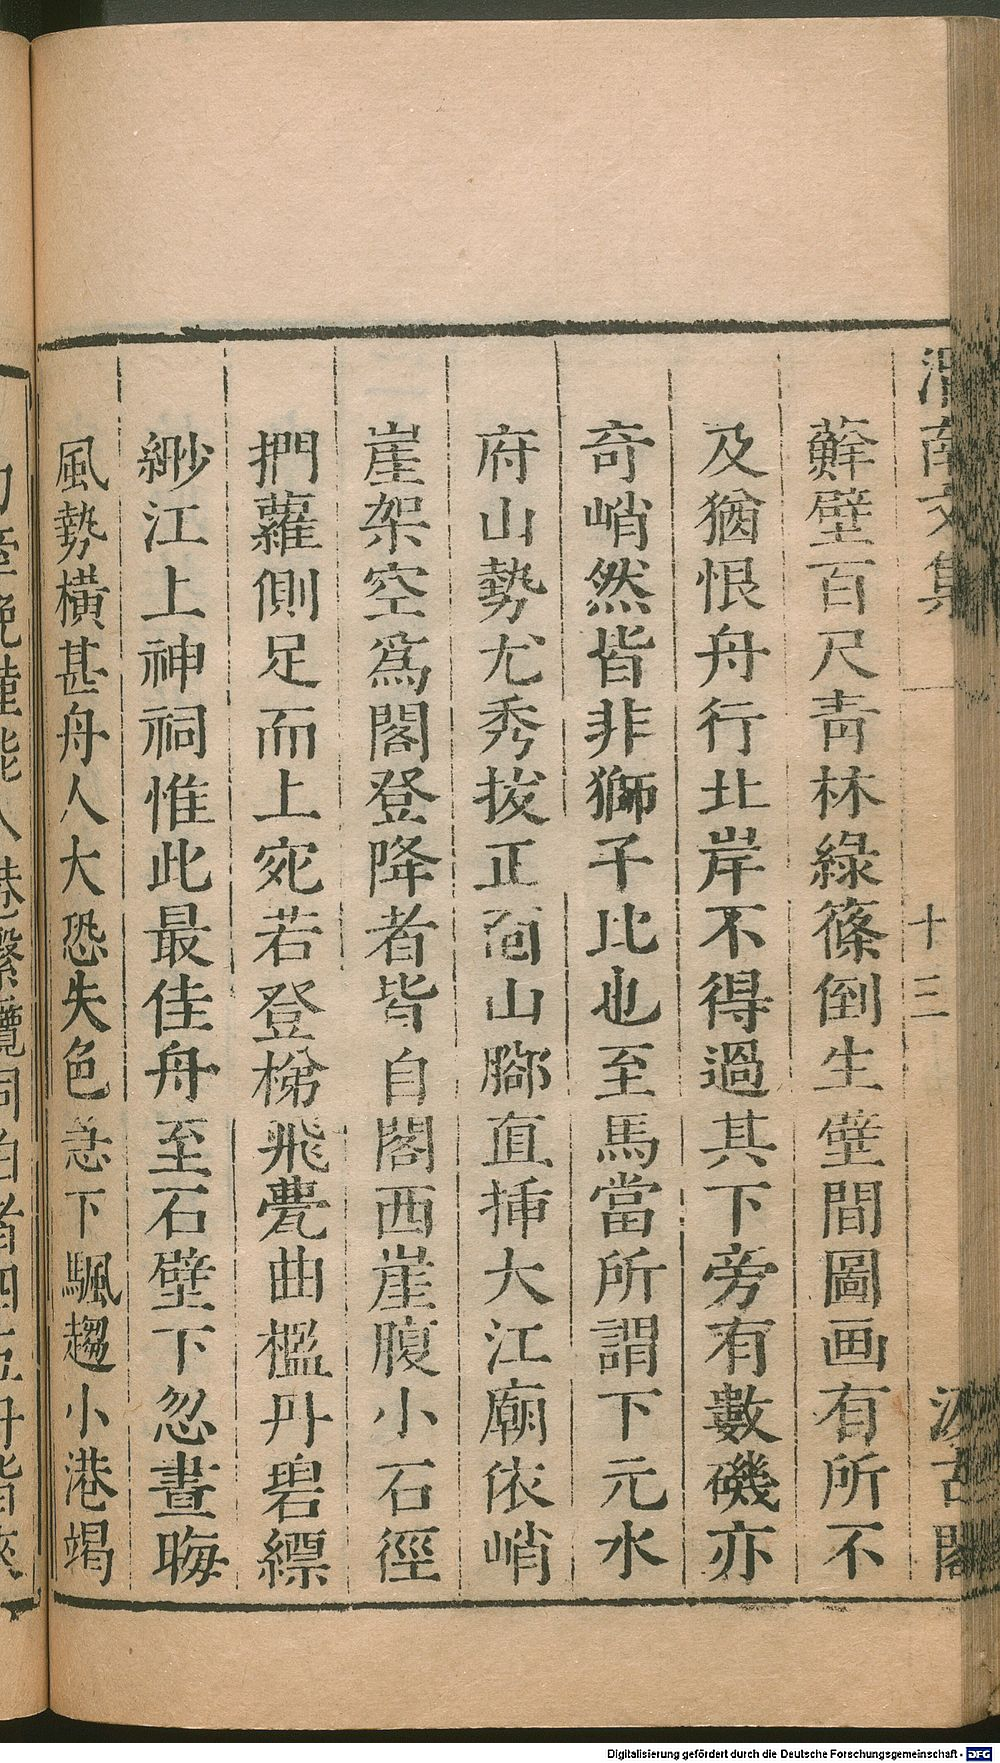 渭南文集 十三 汲古閣
蘚壁百尺靑林綠篠倒生壁間圖画有所不
及猶恨舟行北岸不得過其下旁有數磯亦
奇峭然皆非獅子比也至馬當所謂下元水
府山勢尤秀拔正面山腳直揷大江廟依峭
崖架空爲閣登降者皆自閣西崖腹小石徑
捫蘿側足而上宛若登梯飛甍曲檻丹碧縹
緲江上神祠惟此最佳舟至石壁下忽晝晦
風勢橫甚舟人大恐失色急下颿趨小港竭
力牽挽僅能入港繫纜同泊者四五舟皆來
Digitalisierung gefördert durch die Deutsche Forschungsgemeinschaft - DFG